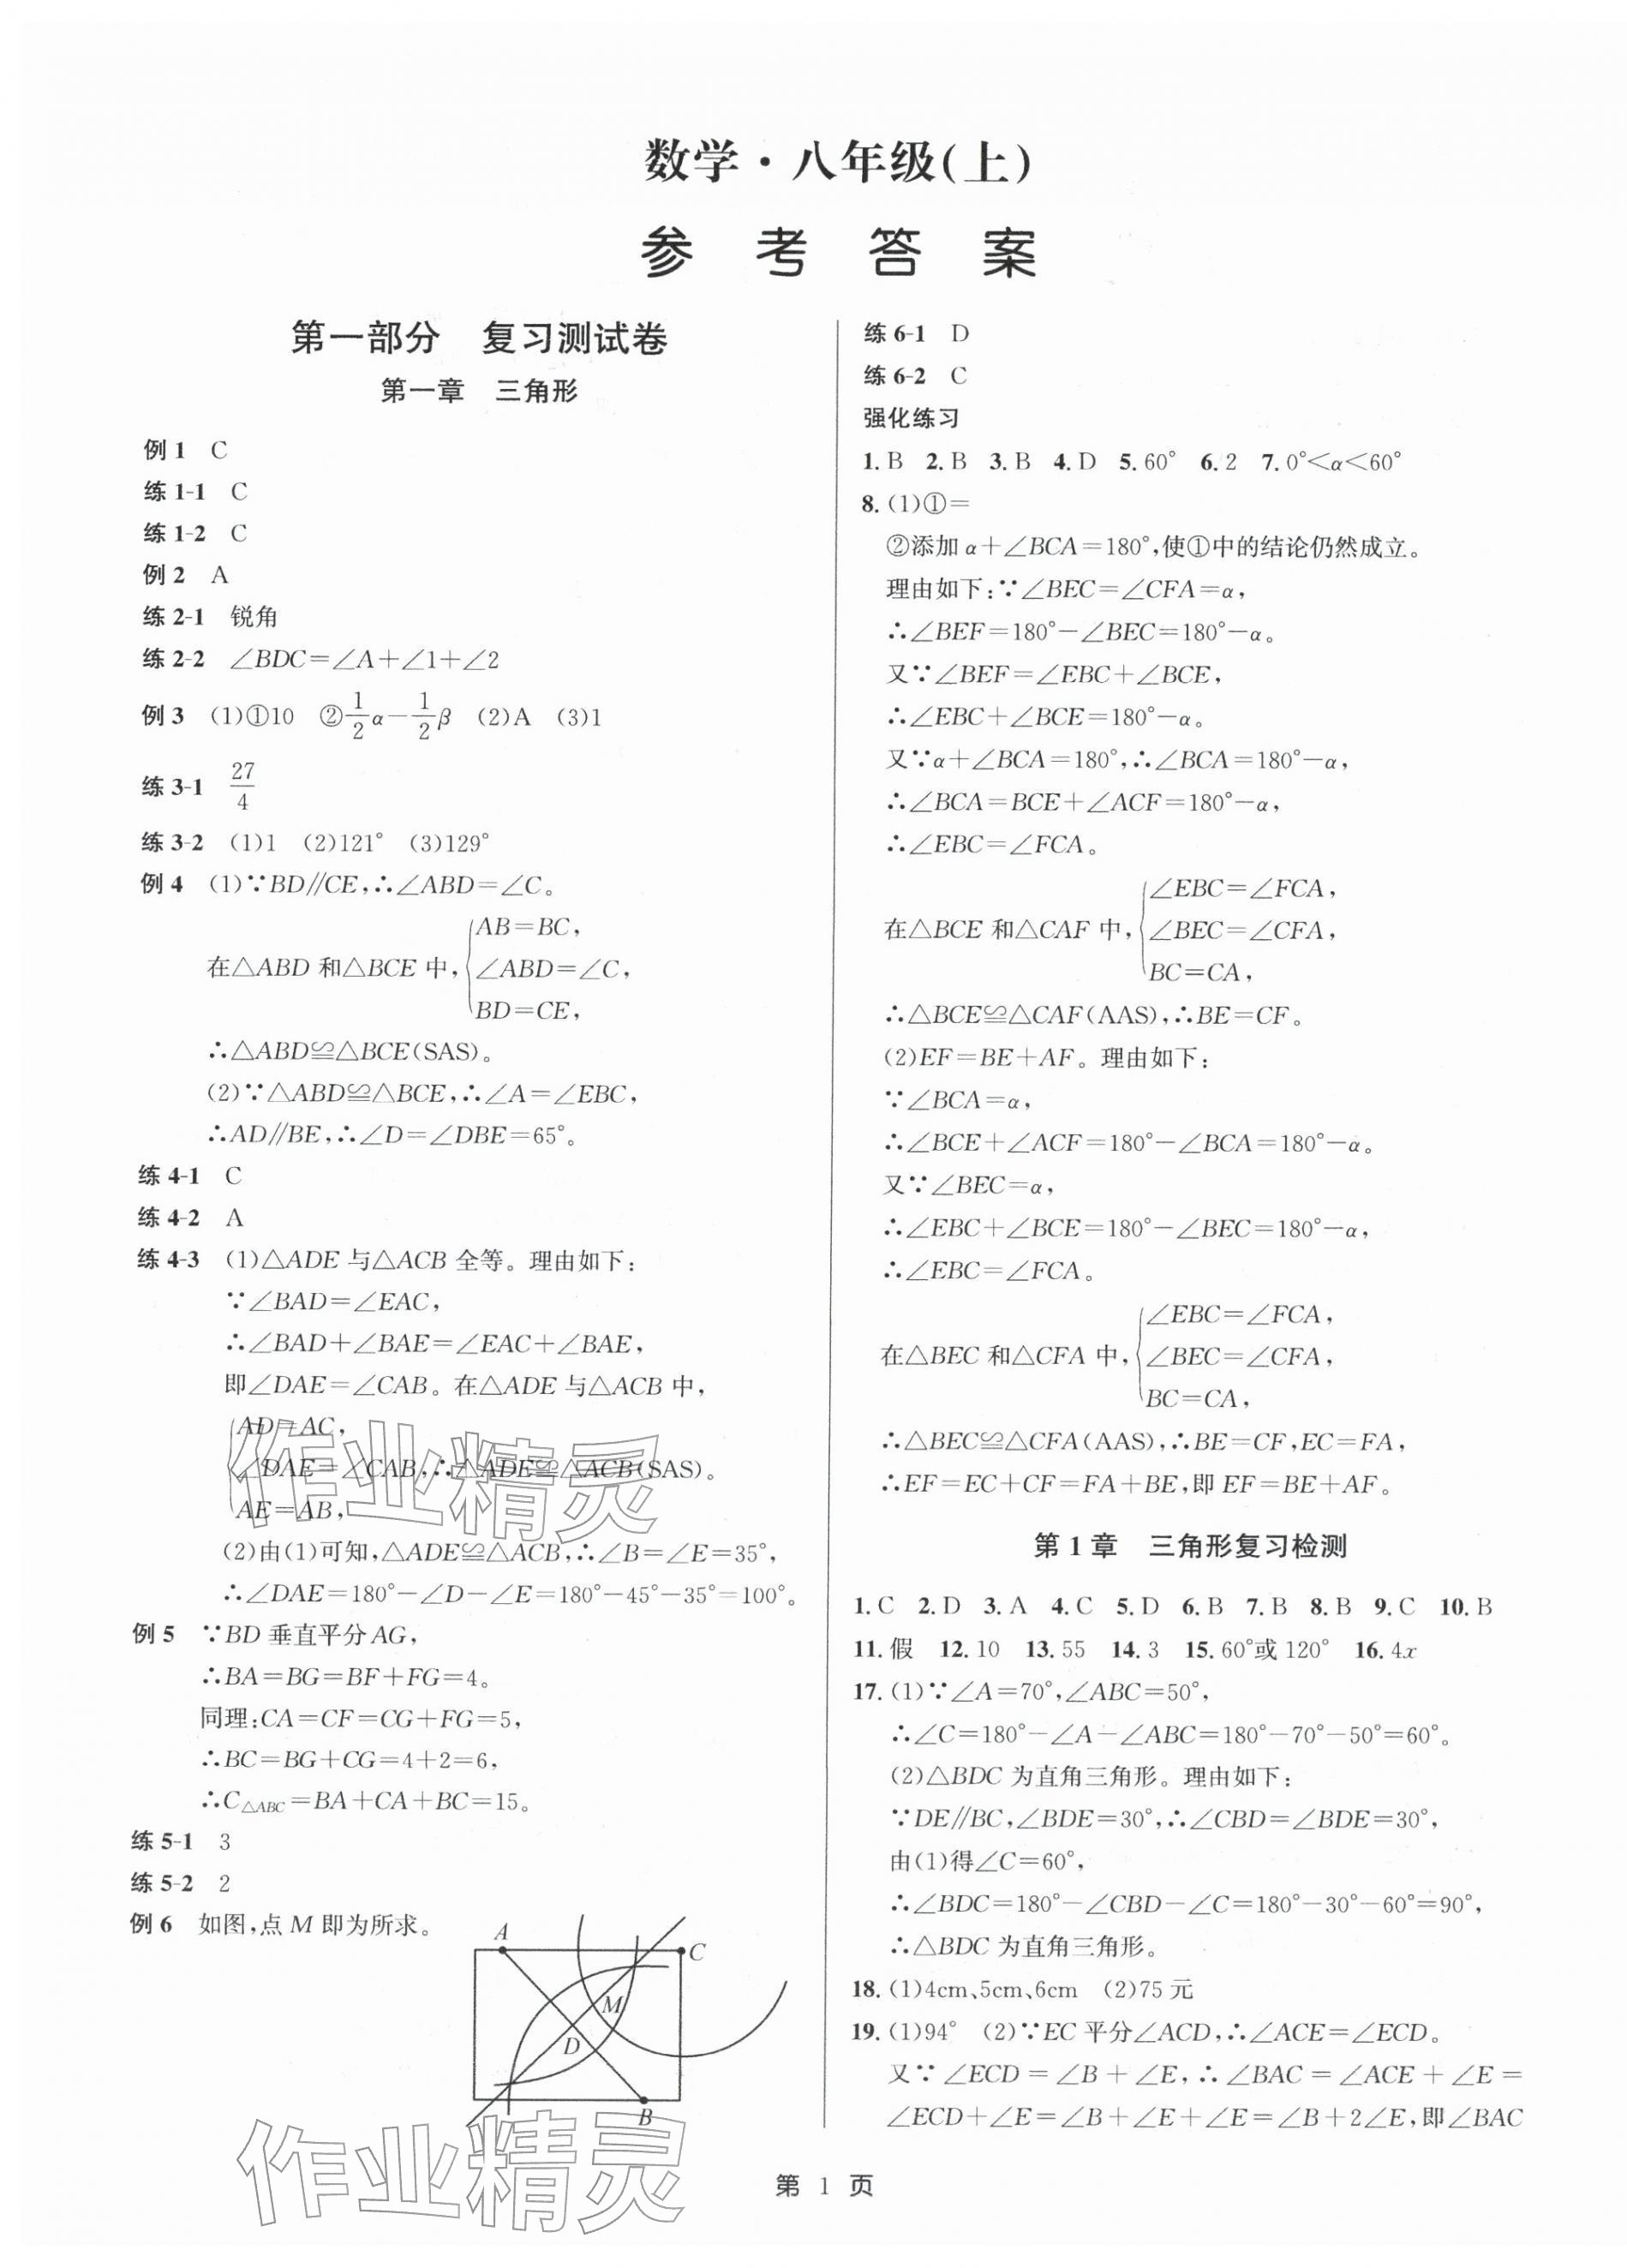 数学·八年级(上)
参考答案
第一部分 复习测试卷
第一章 三角形
例1 C
练1-1 C
练1-2 C
例2 A
练2-1 锐角
练2-2 ∠BDC=∠A+∠1+∠2
例3 (1)①10 ②1/2α-1/2β (2)A (3)1
练3-1 27/4
练3-2 (1)1 (2)121° (3)129°
例4 (1)∵BD∥CE,∴∠ABD=∠C。
AB=BC,
在△ABD和△BCE中,{∠ABD=∠C,
BD=CE,
∴△ABD≌△BCE(SAS)。
(2)∵△ABD≌△BCE,∴∠A=∠EBC,
∴AD∥BE,∴∠D=∠DBE=65°。
练4-1 C
练4-2 A
练4-3 (1)△ADE与△ACB全等。理由如下:
∵∠BAD=∠EAC,
∴∠BAD+∠BAE=∠EAC+∠BAE,
即∠DAE=∠CAB。在△ADE与△ACB中,
AD=AC,
∠DAE=∠CAB,∴△ADE≌△ACB(SAS)。
AE=AB,
(2)由(1)可知,△ADE≌△ACB,∴∠B=∠E=35°,
∴∠DAE=180°-∠D-∠E=180°-45°-35°=100°。
例5 ∵BD垂直平分AG,
∴BA=BG=BF+FG=4。
同理:CA=CF=CG+FG=5,
∴BC=BG+CG=4+2=6,
∴C△ABC=BA+CA+BC=15。
练5-1 3
练5-2 2
例6 如图,点M即为所求。
A
C
M
D
B
练6-1 D
练6-2 C
强化练习
1.B 2.B 3.B 4.D 5.60° 6.2 7.0°<α<60°
8.(1)①=
②添加α+∠BCA=180°,使①中的结论仍然成立。
理由如下:∵∠BEC=∠CFA=α,
∴∠BEF=180°-∠BEC=180°-α。
又∵∠BEF=∠EBC+∠BCE,
∴∠EBC+∠BCE=180°-α。
又∵α+∠BCA=180°,∴∠BCA=180°-α,
∴∠BCA=BCE+∠ACF=180°-α,
∴∠EBC=∠FCA。
∠EBC=∠FCA,
在△BCE和△CAF中,{∠BEC=∠CFA,
BC=CA,
∴△BCE≌△CAF(AAS),∴BE=CF。
(2)EF=BE+AF。理由如下:
∵∠BCA=α,
∴∠BCE+∠ACF=180°-∠BCA=180°-α。
又∵∠BEC=α,
∴∠EBC+∠BCE=180°-∠BEC=180°-α,
∴∠EBC=∠FCA。
∠EBC=∠FCA,
在△BEC和△CFA中,{∠BEC=∠CFA,
BC=CA,
∴△BEC≌△CFA(AAS),∴BE=CF,EC=FA,
∴EF=EC+CF=FA+BE,即EF=BE+AF。
第1章 三角形复习检测
1.C 2.D 3.A 4.C 5.D 6.B 7.B 8.B 9.C 10.B
11.假 12.10 13.55 14.3 15.60°或120° 16.4x
17.(1)∵∠A=70°,∠ABC=50°,
∴∠C=180°-∠A-∠ABC=180°-70°-50°=60°。
(2)△BDC为直角三角形。理由如下:
∵DE∥BC,∠BDE=30°,∴∠CBD=∠BDE=30°,
由(1)得∠C=60°,
∴∠BDC=180°-∠CBD-∠C=180°-30°-60°=90°,
∴△BDC为直角三角形。
18.(1)4cm、5cm、6cm (2)75元
19.(1)94° (2)∵EC平分∠ACD,∴∠ACE=∠ECD。
又∵∠ECD=∠B+∠E,∴∠BAC=∠ACE+∠E=
∠ECD+∠E=∠B+∠E+∠E=∠B+2∠E,即∠BAC
作业精灵
作业精灵
第 1 页